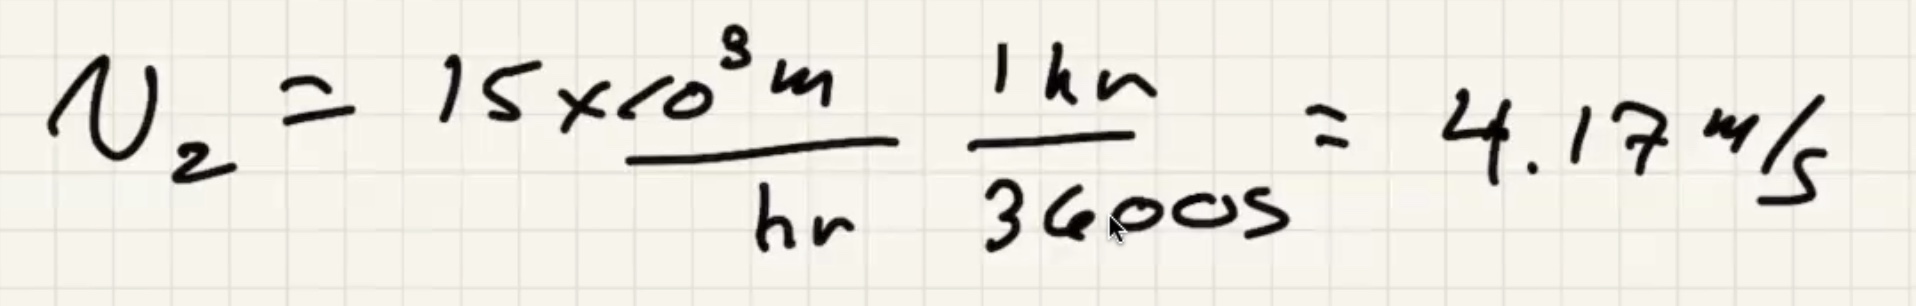 v₂ = 15×10³ m/hr 1 hr/3600s = 4.17 m/s